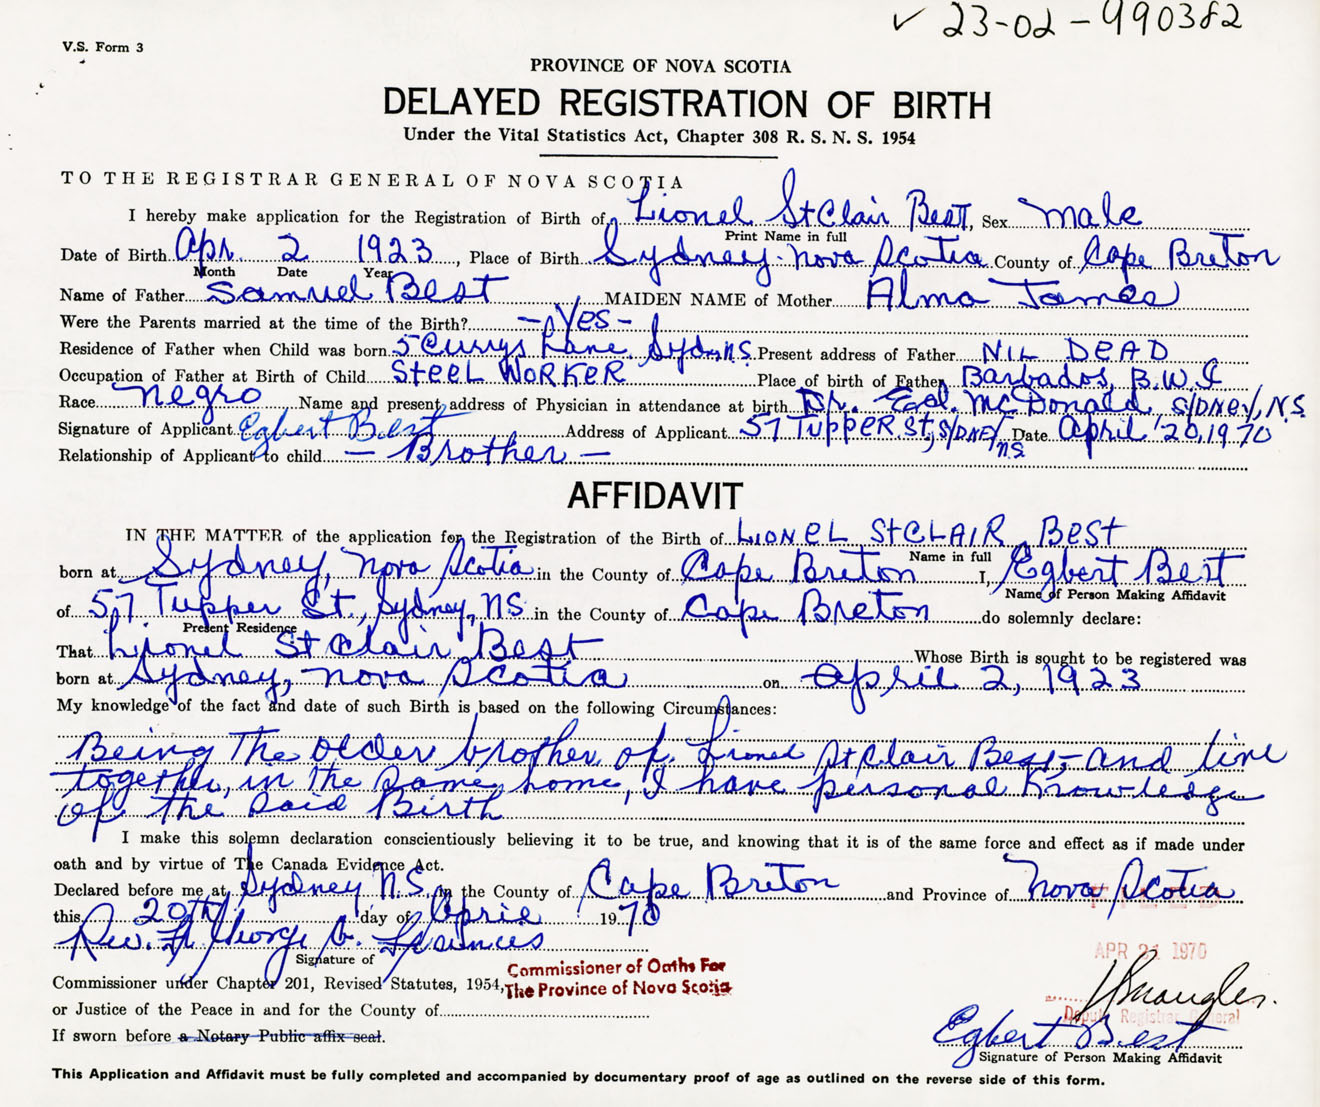 ✓ 23-02-990382
V.S. Form 3
PROVINCE OF NOVA SCOTIA
DELAYED REGISTRATION OF BIRTH
Under the Vital Statistics Act, Chapter 308 R. S. N. S. 1954
TO THE REGISTRAR GENERAL OF NOVA SCOTIA
I hereby make application for the Registration of Birth of Lionel St Clair Best, Sex male
Print Name in full
Date of Birth Apr. 2 1923, Place of Birth Sydney - Nova Scotia County of Cape Breton
Month Date Year
Name of Father Samuel Best MAIDEN NAME of Mother Alma James
Were the Parents married at the time of the Birth? - Yes -
Residence of Father when Child was born 5 Currys Lane Syd. N.S. Present address of Father NIL DEAD
Occupation of Father at Birth of Child STEEL WORKER Place of birth of Father Barbados, B.W.I
Race negro Name and present address of Physician in attendance at birth Dr. Ed. McDonald SYDNEY, N.S
Signature of Applicant Egbert Best Address of Applicant 57 TUPPER St, SYDNEY NS Date April 20, 1970
Relationship of Applicant to child - Brother -
AFFIDAVIT
IN THE MATTER of the application for the Registration of the Birth of LIONEL St CLAIR BEST
Name in full
born at Sydney, Nova Scotia in the County of Cape Breton I, Egbert Best
Name of Person Making Affidavit
of 57 Tupper St., Sydney, NS. in the County of Cape Breton do solemnly declare:
Present Residence
That Lionel St Clair Best Whose Birth is sought to be registered was
born at Sydney, Nova Scotia on April 2, 1923
My knowledge of the fact and date of such Birth is based on the following Circumstances:
Being the older brother of Lionel St Clair Best, and live
together, in the same home, I have personal knowledge
of the said Birth
I make this solemn declaration conscientiously believing it to be true, and knowing that it is of the same force and effect as if made under
oath and by virtue of The Canada Evidence Act.
Declared before me at Sydney N.S. in the County of Cape Breton and Province of Nova Scotia
this 20th day of April 1970
FILED
Rev. George A. Francis
APR 21 1970
Signature of
Commissioner under Chapter 201, Revised Statutes, 1954,
Commissioner of Oaths For
The Province of Nova Scotia
or Justice of the Peace in and for the County of
Deputy Registrar General
If sworn before a Notary Public affix seal.
Egbert Best
Signature of Person Making Affidavit
This Application and Affidavit must be fully completed and accompanied by documentary proof of age as outlined on the reverse side of this form.